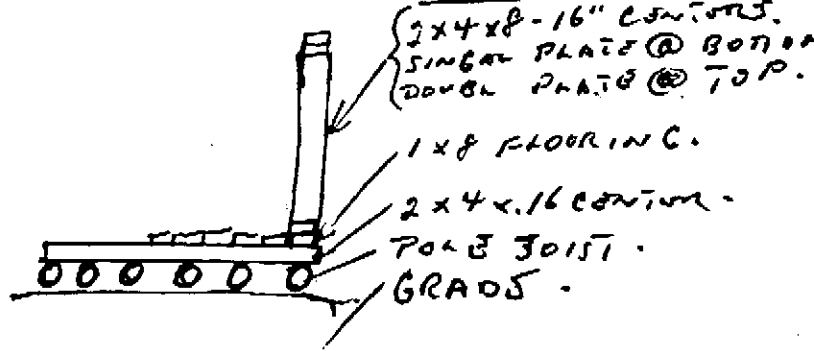 2x4x8-16" CENTORS.
SINGAL PLATE @ BOTTOM
DOUBL PLATE @ TOP.
1x8 FLOORING.
2x4x.16 CENTUR.
POLE JOIST.
GRADS.